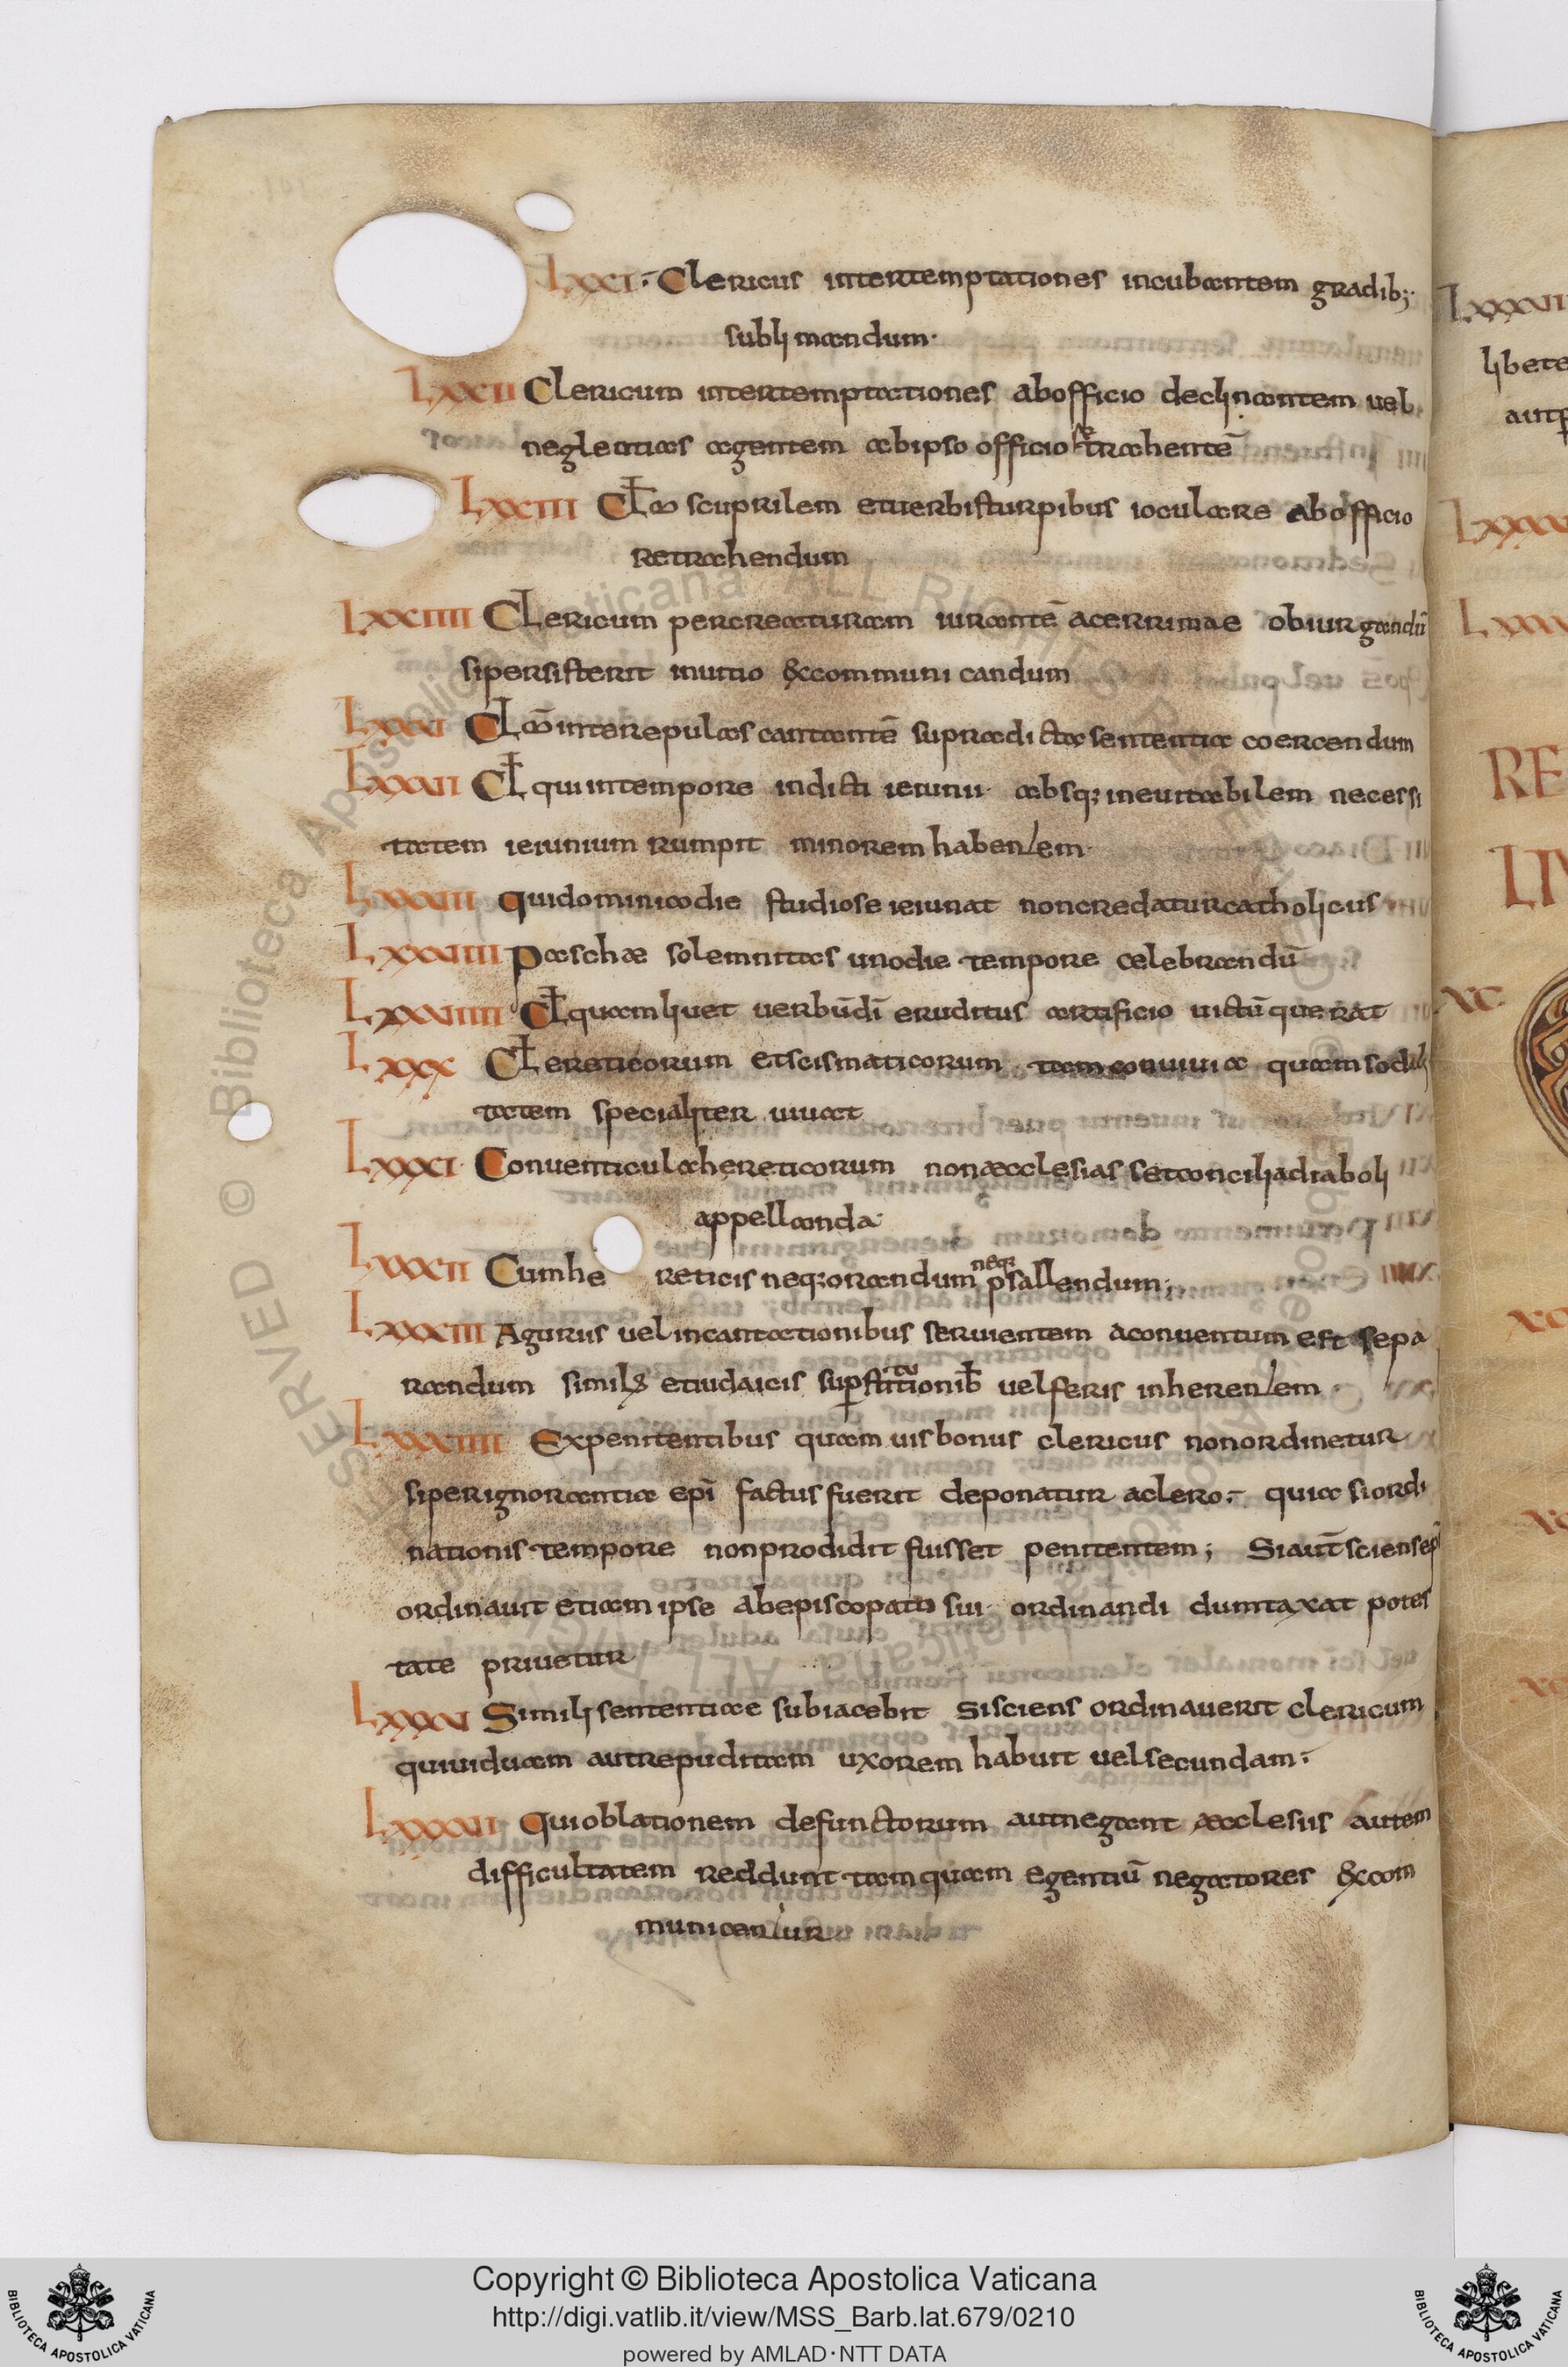 LXXI. Clericus intertemptationes incubantem gradib;
sublimandum.
LXXII Clericum intertemptationes abofficio declinantem uel
neglectias agentem abipso officio retrahentē
LXXIII Cl̄m scuprilem etuerbisturpibus ioculare abofficio
retrahendum
LXXIIII Clericum percreaturam iurantē acerrimae obiurgandū
sipersisterit inuitio &communicandum
LXXVI Cl̄m interepulas cantantē supradicta sententia coercendum
LXXVII Cl̄ quiintempore indicti ieiunii absq; ineuitabilem necessi
tatem ieiunium rumpit minorem habentem.
LXXVIII quidominicodie studiose ieiunat noncredaturcatholicus
LXXVIIII Paschae solemnitas unodie tempore celebrandū
LXXVIIII Cl̄ quamliuet uerbūdī eruditus artificio uictūquerat
LXXX Cl̄ ereticorum etscismaticorum tamconuiuia quamsodali
tatem specialiter uiuat
LXXXI. Conuenticulahereticorum nonaecclesias setconciliadiaboli
appellanda.
LXXXII Cumhe reticis neq;orandum neq; psallendum;
LXXXIII Aguriis uelincantationibus seruientem aconuentum est sepa
randum similꝫ etiudaicis supstitionib; uelferis inherentem
LXXXIIII Expenitentibus quamuisbonus clericus nonordinetur
siperignorantia epī factusfuerit deponatur aclero. quia siordi
nationis tempore nonprodidit fuisset penitentem; Siaut̄sciensep̄
ordinauit etiam ipse abepiscopatu sui ordinandi dumtaxat potes
tate priuetur
LXXXV Similisententiae subiacebit Sisciens ordinauerit clericum
quiuiduam autrepuditam uxorem habuit uelsecundam.
LXXXVI Quioblationem defunctorum autnegant aecclesiis autem
difficultatem reddunt tamquam egentiū negatores &com
municentur
LXXXVII
libete
autp
LXXXV
LXXX
RE
LIV
XC
Copyright © Biblioteca Apostolica Vaticana
http://digi.vatlib.it/view/MSS_Barb.lat.679/0210
powered by AMLAD·NTT DATA
BIBLIOTECA APOSTOLICA VATICANA
BIBLIOTECA APOSTOLICA VATICANA